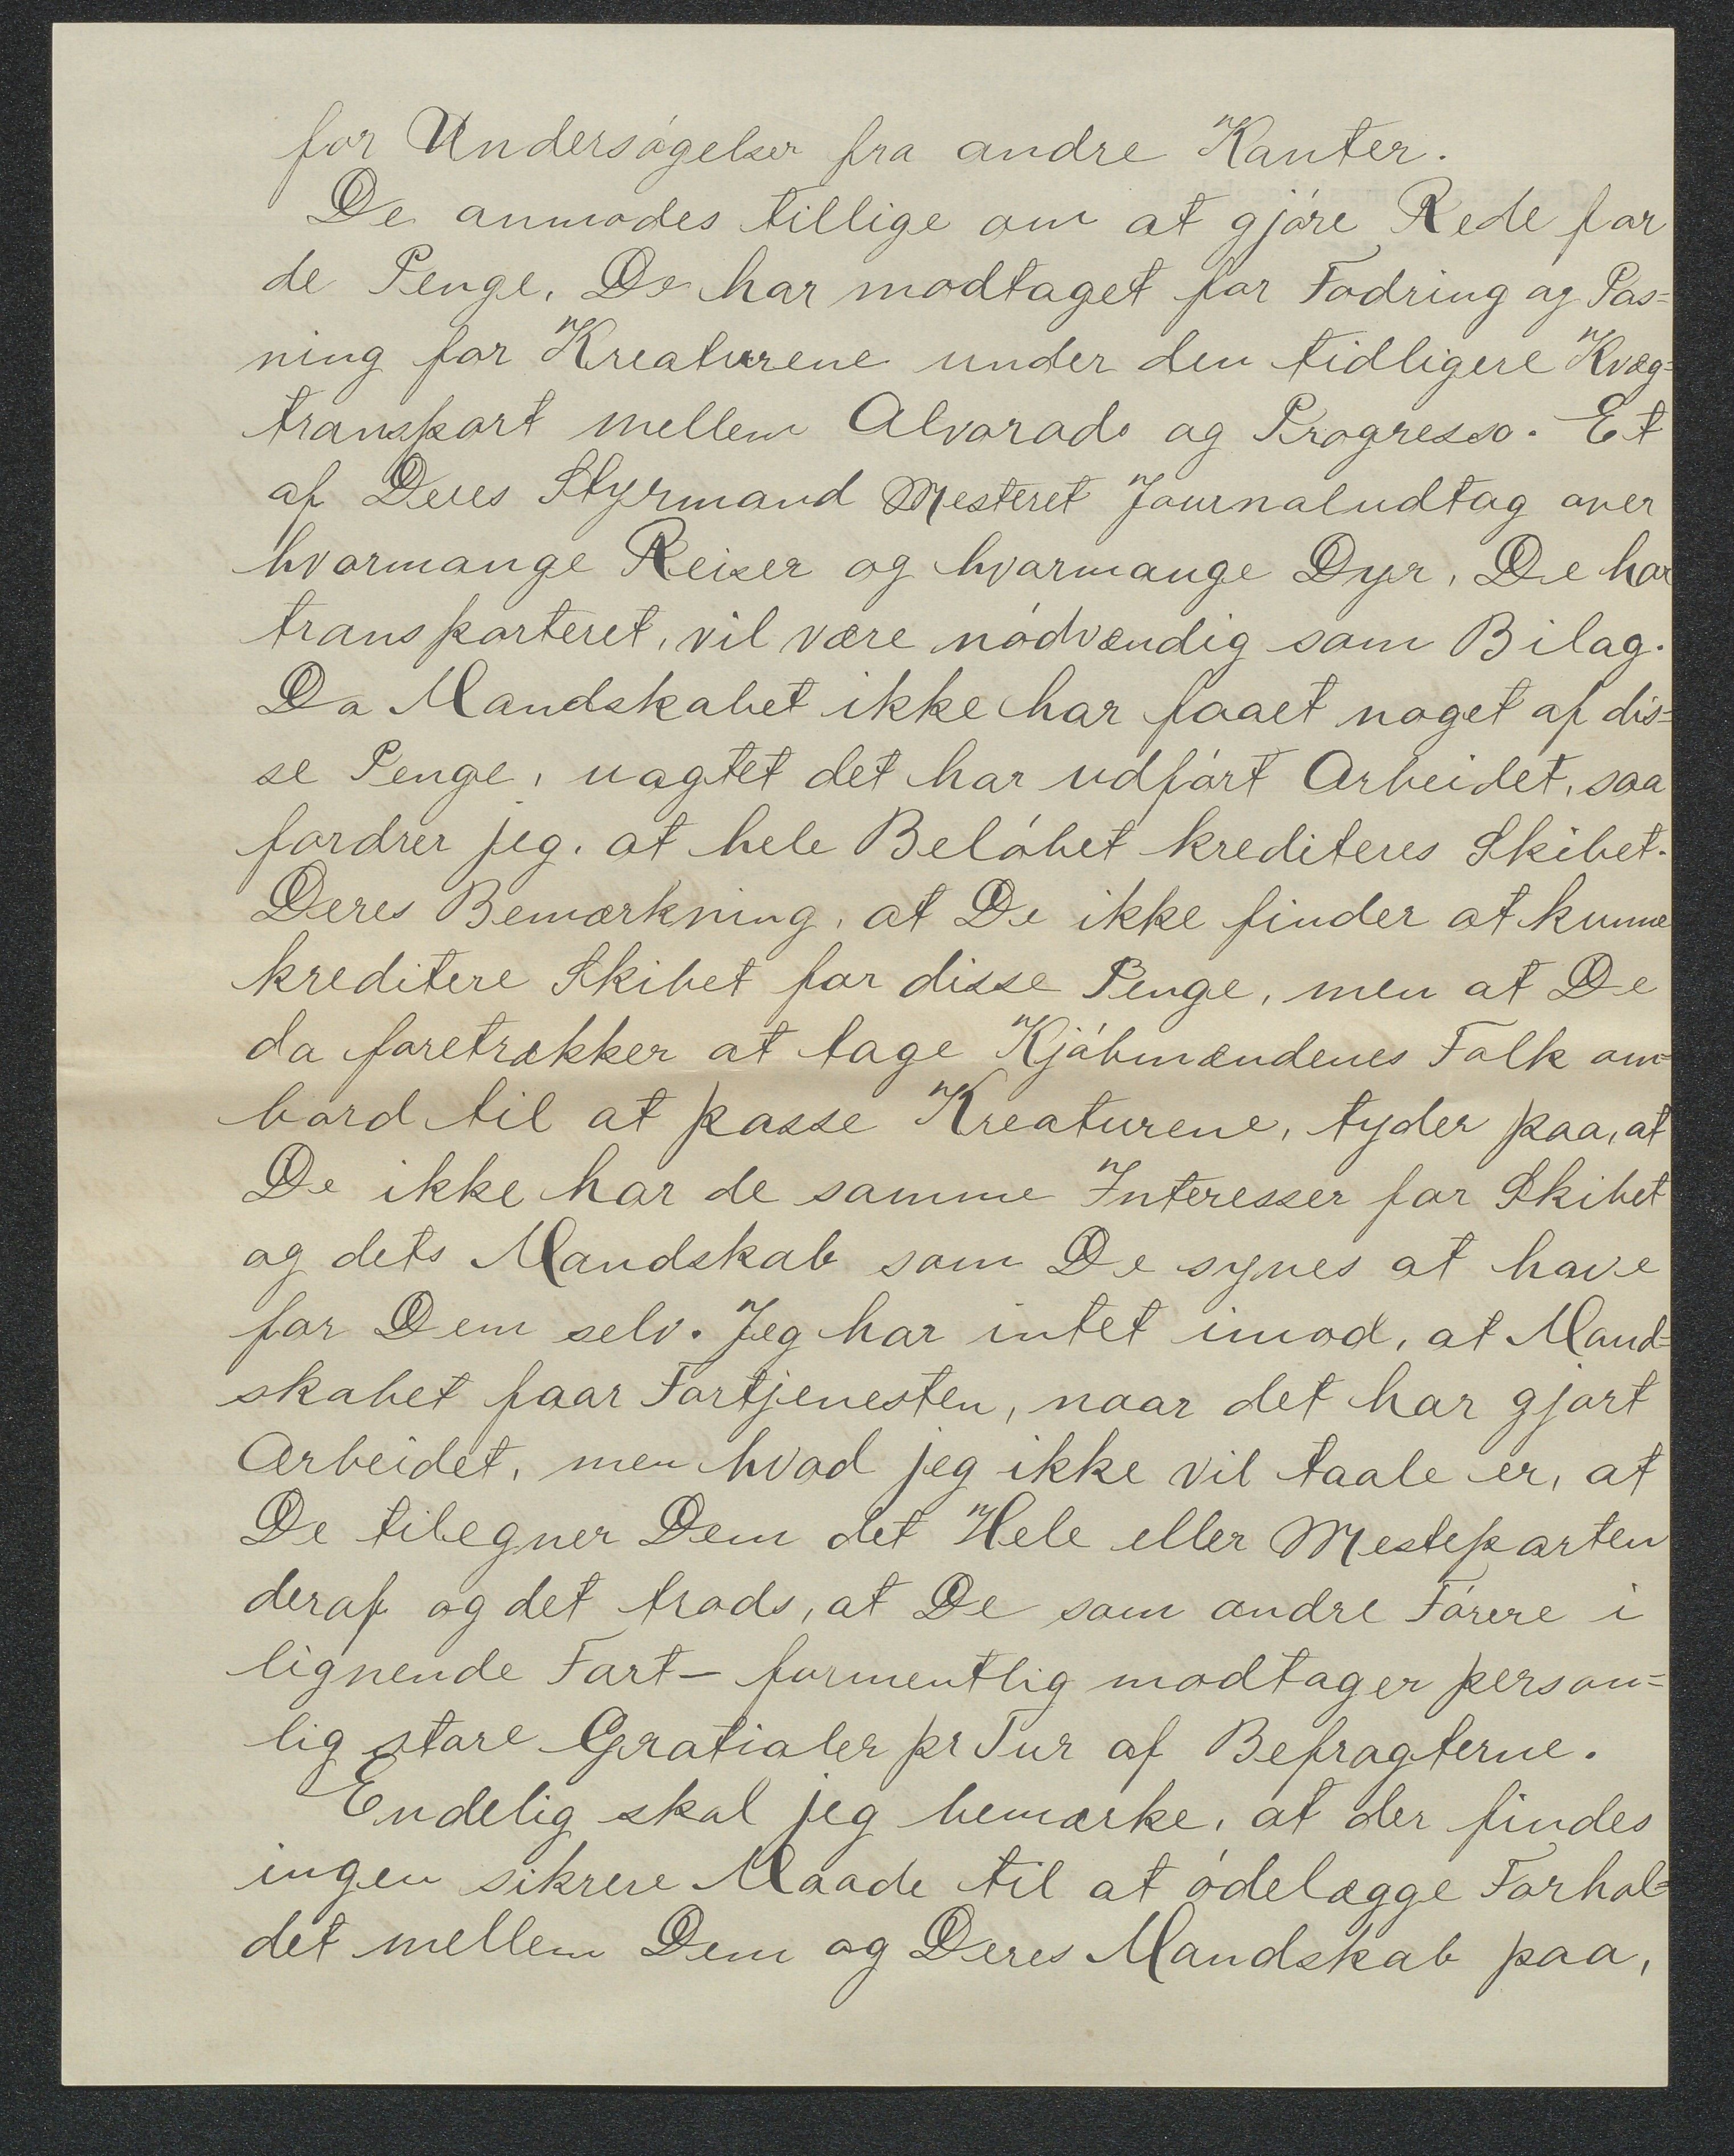 for Undersøgelser fra andre Kanter.
De anmodes tillige om at gjøre Rede for
de Penge, De har modtaget for Fodring og Pas=
ning for Kreaturene under den tidligere Kvæg=
transport mellem Alvorado og Progresso. Et
af Deres Styrmand Mesteret Journaludtog over
hvormange Reiser og hvormange Dyr, De har
transporteret, vil være nødvændig som Bilag.
Da Mandskabet ikke har faaet noget af dis=
se Penge, uagtet det har udført Arbeidet, saa
fordrer jeg, at hele Beløbet krediteres Skibet.
Deres Bemærkning, at De ikke finder at kunne
kreditere Skibet for disse Penge, men at De
da foretrækker at tage Kjøbmændenes Folk om=
bord til at passe Kreaturene, tyder paa, at
De ikke har de samme Interesser for Skibet
og dets Mandskab som De synes at have
for Dem selv. Jeg har intet imod, at Mand=
skabet faar Fortjenesten, naar det har gjort
Arbeidet, men hvad jeg ikke vil taale er, at
De tilegner Dem det Hele eller Mesteparten
deraf og det trods, at De som andre Førere i
lignende Fart – formentlig modtager person=
lig store Gratialer pr Tur af Befragterne.
Endelig skal jeg bemærke, at der findes
ingen sikrere Maade til at ødelægge Forhol=
det mellem Dem og Deres Mandskab paa,